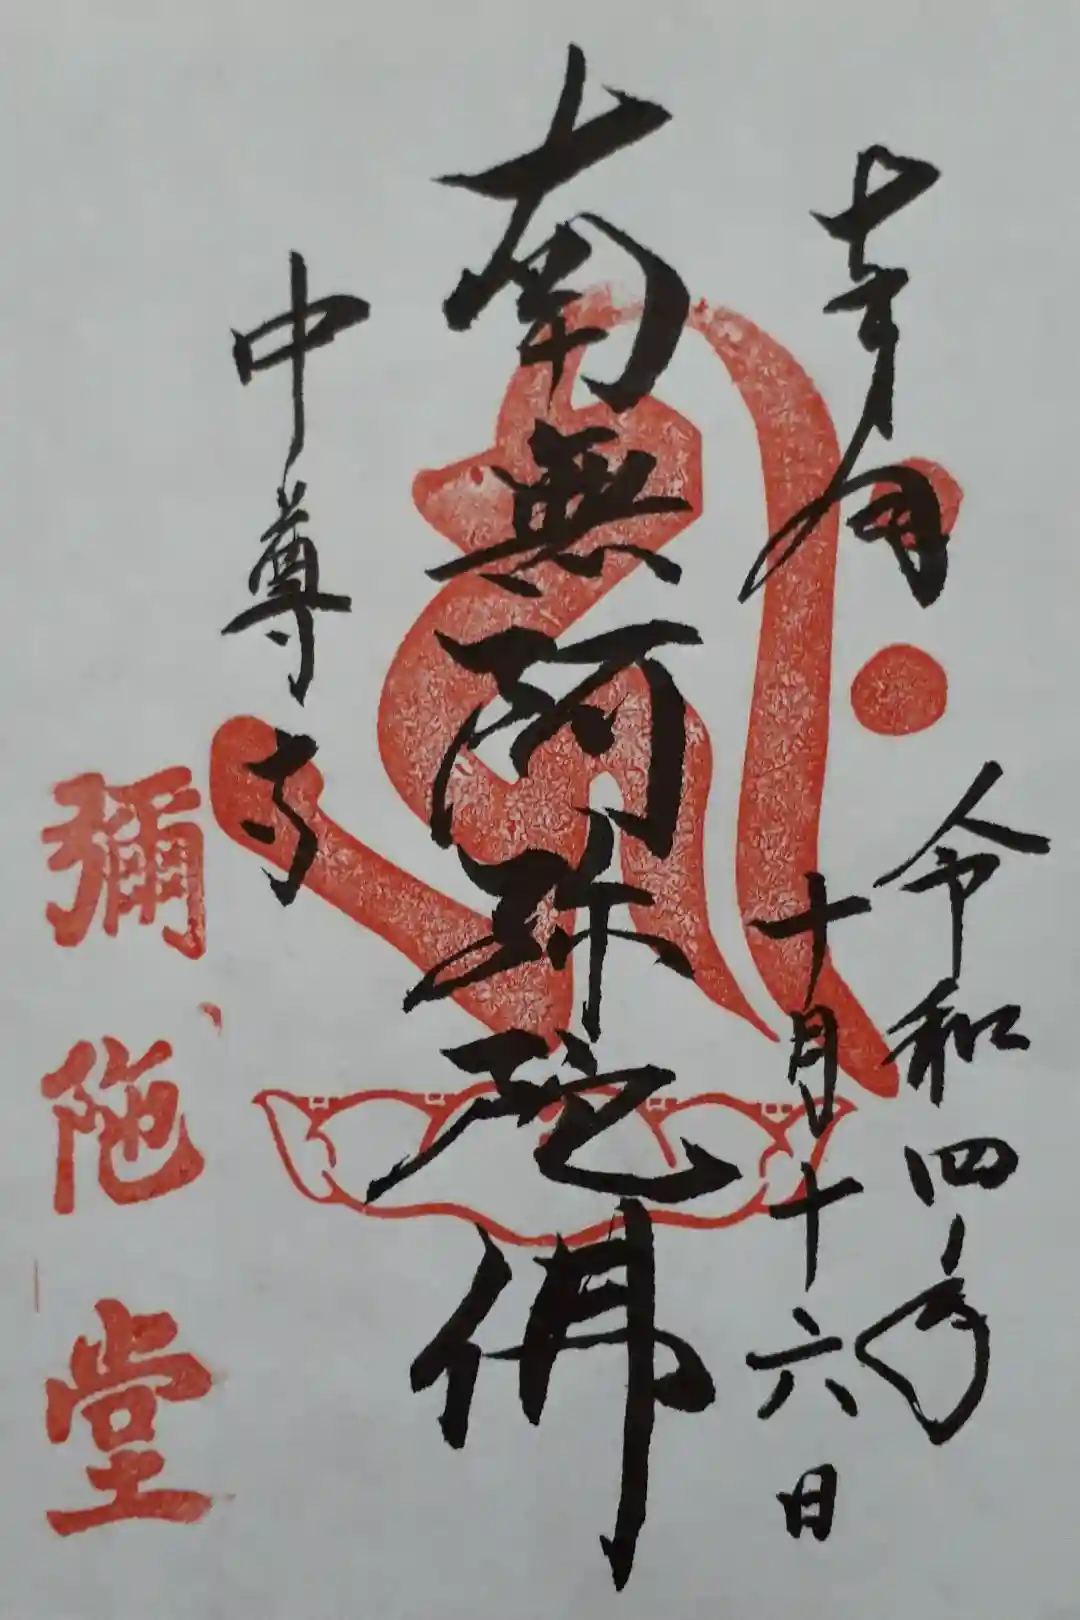 奉拝
令和四年
十月十六日
南無阿弥陀佛
中尊寺
彌陁堂